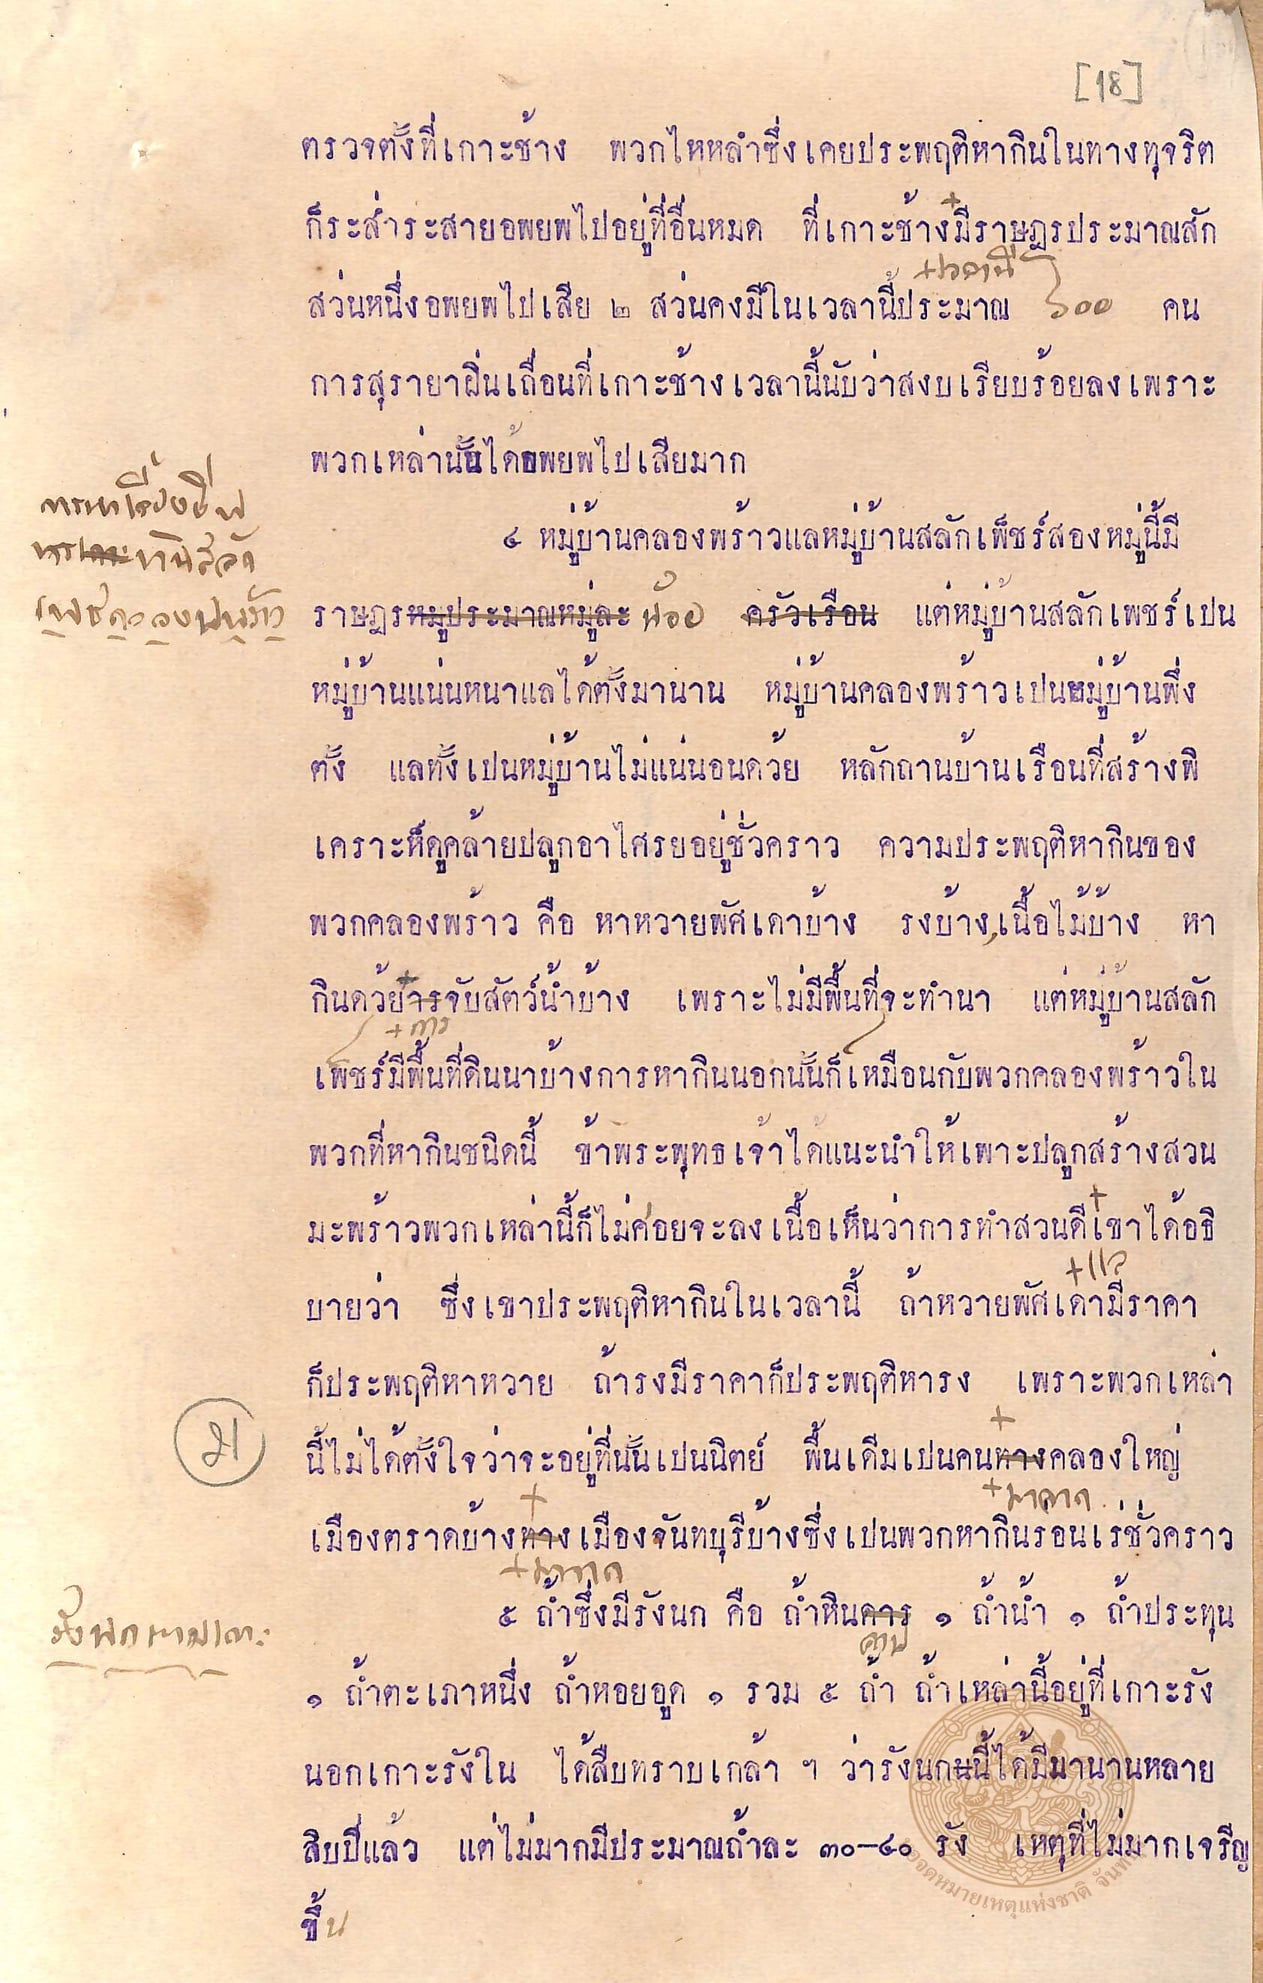 [18]
ตรวจตั้งที่เกาะช้าง พวกไหหลำซึ่งเคยประพฤติหากินในทางทุจริต
ก็ระส่ำระสายอพยพไปอยู่ที่อื่นหมด ที่เกาะช้าง+มีราษฎรประมาณสัก
+เวลานี้
ส่วนหนึ่งอพยพไปเสีย ๒ ส่วนคงมีในเวลานี้ประมาณ ๖๐๐ คน
การสุรายาฝิ่นเถื่อนที่เกาะช้างเวลานี้นับว่าสงบเรียบร้อยลงเพราะ
พวกเหล่านั้นได้อพยพไปเสียมาก
๔ หมู่บ้านคลองพร้าวแลหมู่บ้านสลักเพ็ชร์สองหมู่นี้มี
ราษฎรหมู่ประมาณหมู่ละ น้อย ครัวเรือน แต่หมู่บ้านสลักเพชร์เปน
หมู่บ้านแน่นหนาแลได้ตั้งมานาน หมู่บ้านคลองพร้าวเปนหมู่บ้านพึ่ง
ตั้ง แลทั้งเปนหมู่บ้านไม่แน่นอนด้วย หลักถานบ้านเรือนที่สร้างพิ
เคราะห์ดูคล้ายปลูกอาไศรยอยู่ชั่วคราว ความประพฤติหากินของ
พวกคลองพร้าว คือ หาหวายพัศเดาบ้าง รงบ้าง,เนื้อไม้บ้าง หา
กินด้วย+ารจับสัตว์น้ำบ้าง เพราะไม่มีพื้นที่จะทำนา แต่หมู่บ้านสลัก
+การ
เพ็ชร์มีพื้นที่ดินนาบ้างการหากินนอกนั้นก็เหมือนกับพวกคลองพร้าวใน
พวกที่หากินชนิดนี้ ข้าพระพุทธเจ้าได้แนะนำให้เพาะปลูกสร้างสวน
มะพร้าวพวกเหล่านี้ก็ไม่ค่อยจะลงเนื้อเห็นว่าการทำสวนดี+เขาได้อธิ
+แล
บายว่า ซึ่งเขาประพฤติหากินในเวลานี้ ถ้าหวายพัศเดามีราคา
ก็ประพฤติหาหวาย ถ้ารงมีราคาก็ประพฤติหารง เพราะพวกเหล่า
นี้ไม่ได้ตั้งใจว่าจะอยู่ที่นั้นเปนนิตย์ พื้นเดิมเปนคน+ทางคลองใหญ่
+มาจาก
เมืองตราดบ้าง+ทางเมืองจันทบุรีบ้างซึ่งเปนพวกหากินร่อนเร่ชั่วคราว
+มาจาก
๕ ถ้ำซึ่งมีรังนก คือ ถ้ำหินดาร ๑ ถ้ำน้ำ ๑ ถ้ำประทุน
รังนกตามเกาะ
๑ ถ้ำตะเภาหนึ่ง ถ้ำหอยอูด ๑ รวม ๕ ถ้ำ ถ้ำเหล่านี้อยู่ที่เกาะรัง
นอกเกาะรังใน ได้สืบทราบเกล้า ฯ ว่ารังนกนี้ได้มีมานานหลาย
สิบปีแล้ว แต่ไม่มากมีประมาณถ้ำละ ๓๐–๔๐ รัง เหตุที่ไม่มากเจริญ
ขึ้น